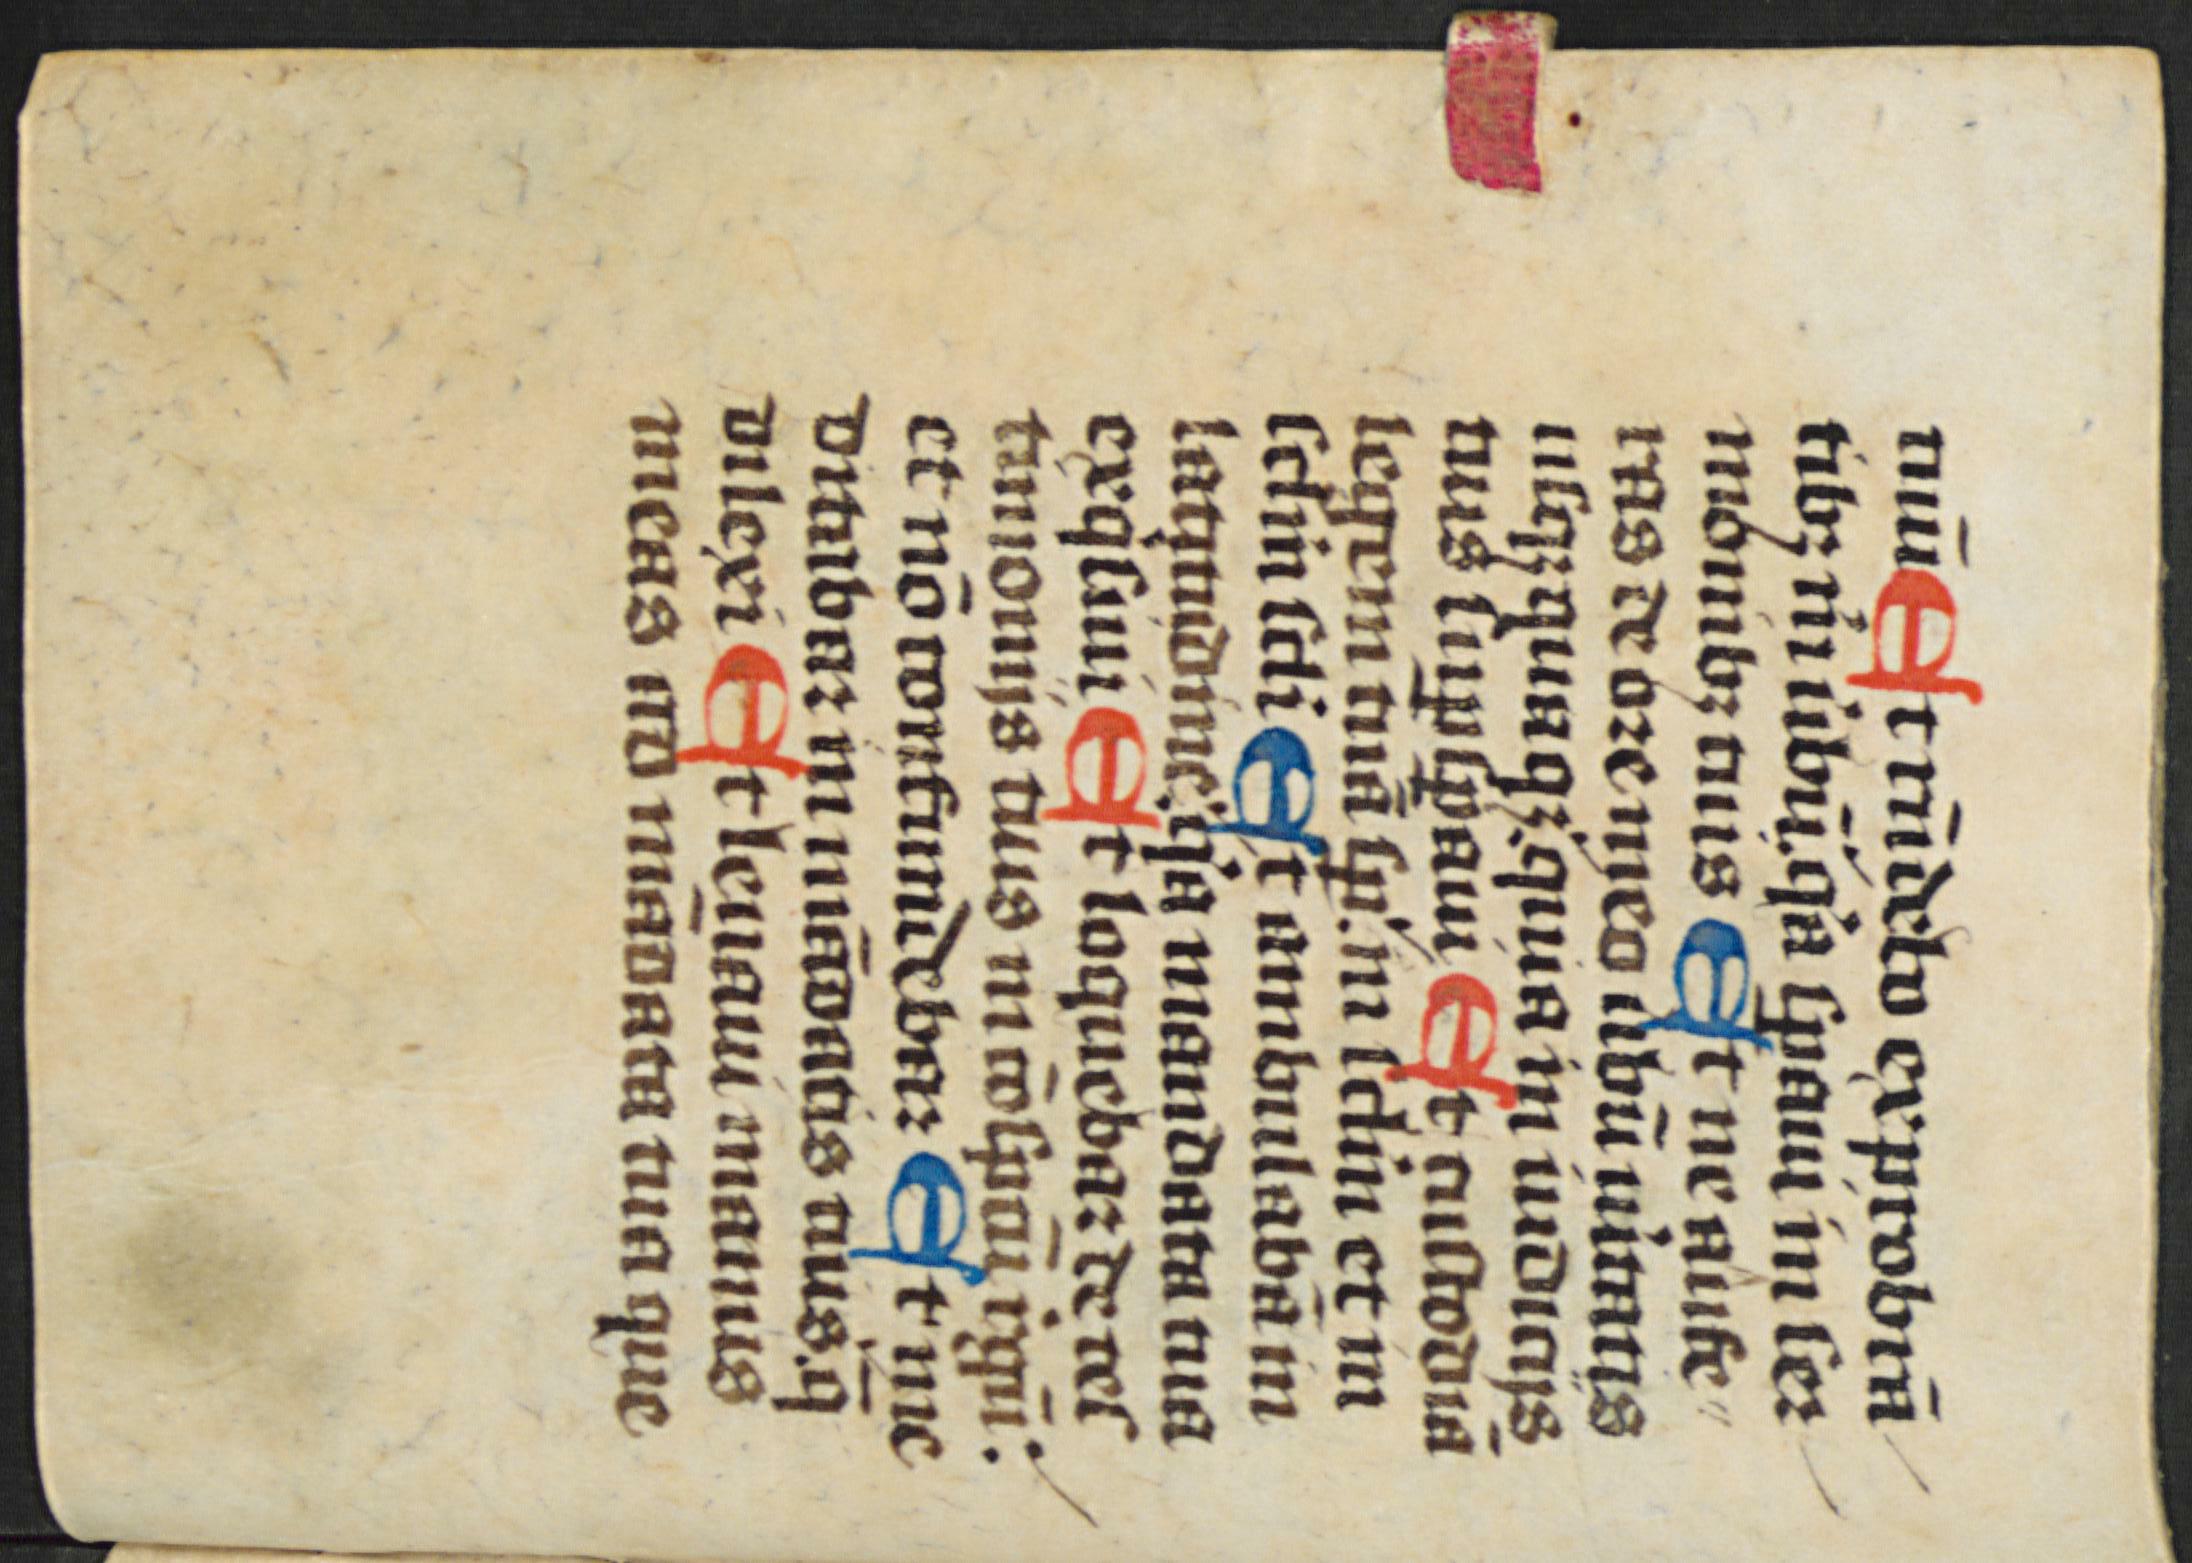 tuū Et rn̄debo exprobrā
tibꝫ m̄ ūbū. qꝛ spaui in ser
mōnibꝫ tuis Et ne aufe
ras de ore meo ūbū ūitatis
usqꝫ quaqꝫ. quia in iudicijs
tuis supspaui Et custodiā
legem tuā sp̄. in sclm et in
sclm scli Et ambulabā in
latitudine. qꝛ mandata tua
exqsiui Et loquebar de tes
timonijs tuis in ꝯspcū regū:
et nō confundebar Et me
ditabar in mādatis tuis. q̄
dilexi Et leuaui manus
meas ad madata tua que